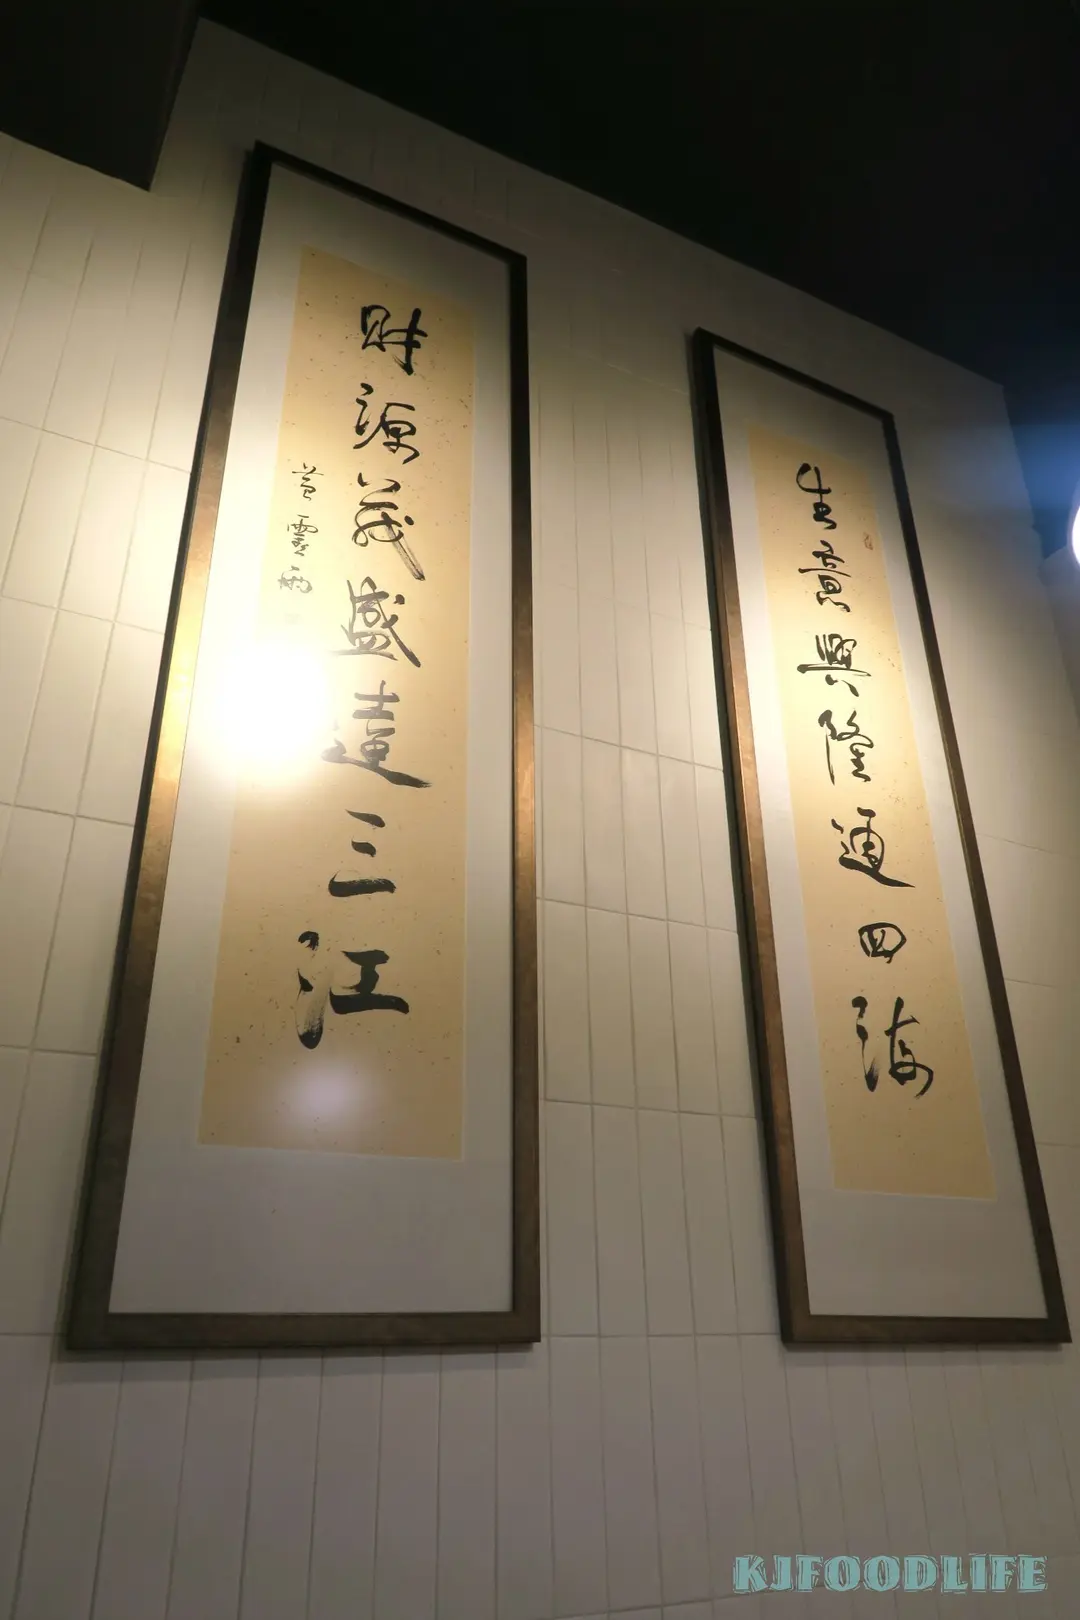 生意興隆通四海
財源茂盛達三江
KJFOODLIFE